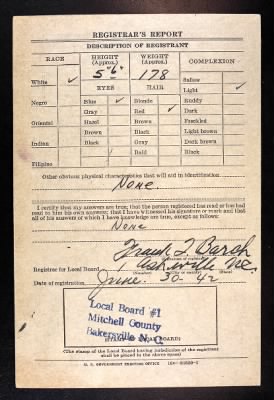 REGISTRAR'S REPORT
DESCRIPTION OF REGISTRANT
RACE HEIGHT (Approx.) WEIGHT (Approx.) COMPLEXION
5'6" 178
White ✓ Sallow
EYES HAIR Light ✓
Negro Blue ✓ Blonde Ruddy
Gray Red ✓ Dark
Oriental Hazel Brown Freckled
Brown Black Light brown
Indian Black Gray Dark brown
Bald Black
Filipino
Other obvious physical characteristics that will aid in identification
None.
I certify that my answers are true; that the person registered has read or has had
read to him his own answers; that I have witnessed his signature or mark and that
all of his answers of which I have knowledge are true, except as follows:
None
Registrar for Local Board
Date of registration June 30-42
Local Board #1
Mitchell County
Bakersville N. C.
(The stamp of the Local Board having jurisdiction of the registrant
shall be placed in the above space)
U. S. GOVERNMENT PRINTING OFFICE